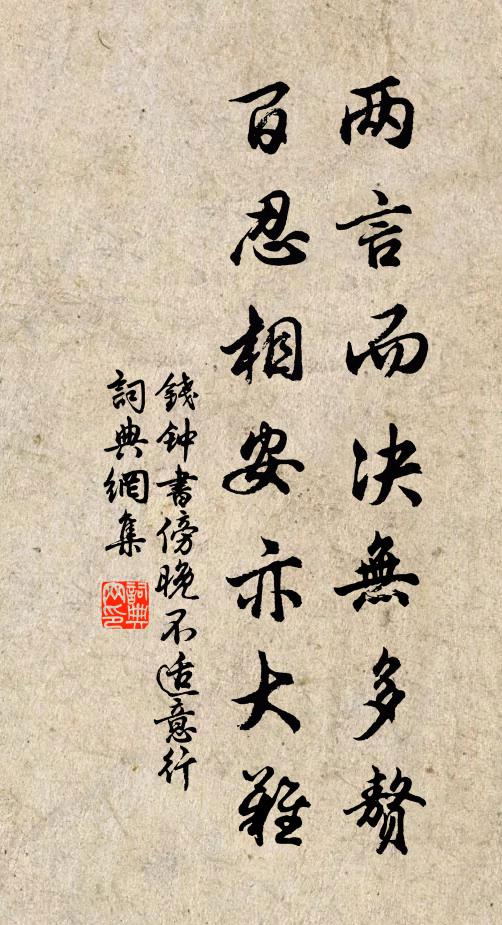 两言而决無多贅
百忍相安亦大難
錢钟書傍晚不适意行
詞典網集
詞典网印